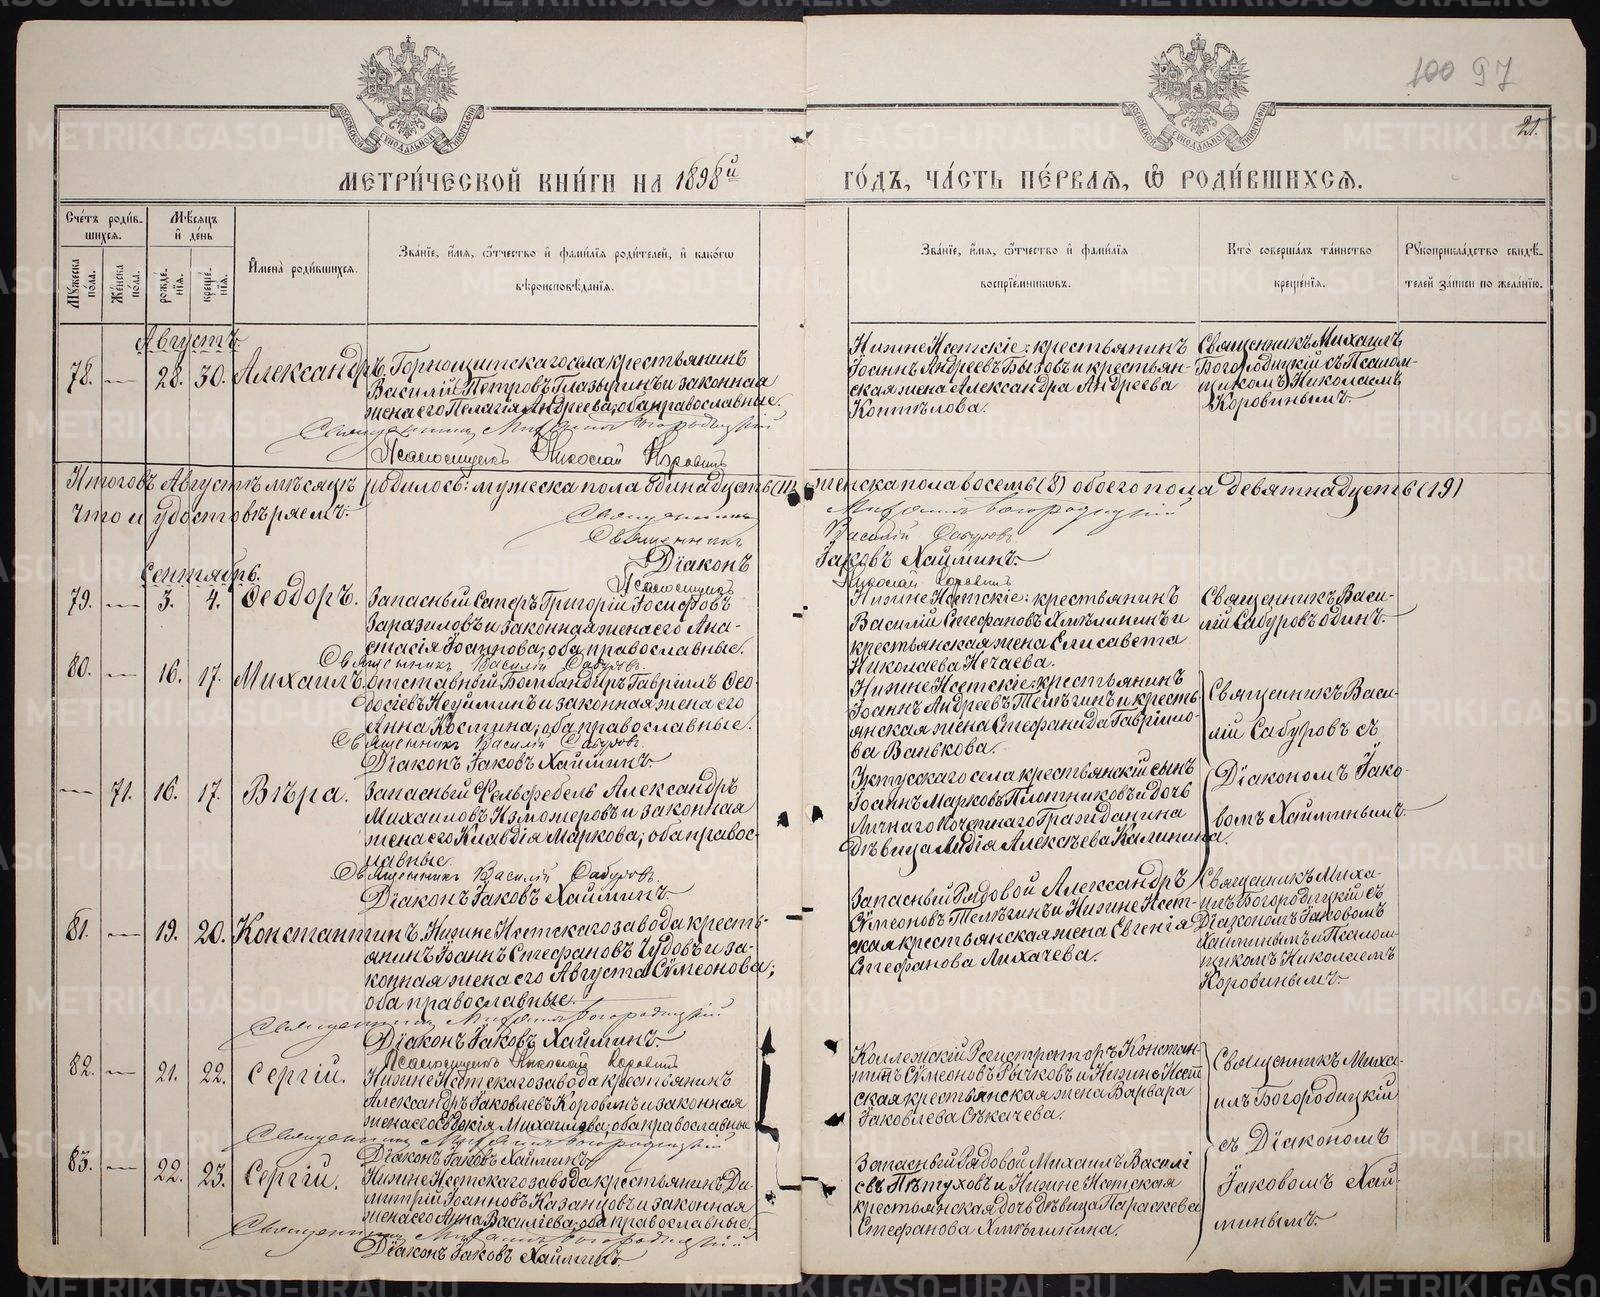 100 97
21.
МОСКОВСКОЙ СИНОДАЛЬНОЙ ТИПОГРАФІИ
МОСКОВСКОЙ СИНОДАЛЬНОЙ ТИПОГРАФІИ
МЕТРИ́ЧЕСКОЙ КНИ́ГИ НА 1898й
ГО́ДЪ, ЧА́СТЬ ПЕ́РВАЯ, Ѿ РОДИ́ВШИХСЯ.
Сче́тъ роди́в-
шихся.
Мѣ́сяцъ
и҆ де́нь
Му́жеска по́ла.
Же́нска по́ла.
рожде́-нїѧ.
креще́-нїѧ.
И҆мена̀ роди́вшихся.
Зва́нїе, и҆́мѧ, ѻ҆́тчество и҆ фами́лїѧ роди́телей, и҆ како́гѡ
вѣроисповѣ́данїѧ.
Зва́нїе, и҆́мѧ, ѻ҆́тчество и҆ фами́лїѧ
воспрїе́мникѡвъ.
Кто̀ соверша́лъ та́инство
креще́нїѧ.
Рꙋкоприкла́дство свидѣ́-
телей за́писи по жела́нїю.
Августъ.
78. — 28. 30. Александръ. Горнощитскаго села крестьянинъ
Василій Петровъ Глазыринъ и законная
жена его Пелагія Андреева; оба православные.
Священникъ Михаилъ Богородицкій
Псаломщикъ Николай Коровинъ
Нижне Исетскіе: крестьянинъ
Іоаннъ Андреевъ Бызовъ и крестьян-
ская жена Александра Андреева
Коптѣлова.
Священникъ Михаилъ
Богородицкій съ Псалом-
щикомъ Николаемъ
Коровинымъ.
Итого въ Августѣ мѣсяцѣ родилось: мужеска пола одинадцать (11) женска пола восемь (8) обоего пола девятнадцать (19)
Что и удостовѣряемъ:
Священникъ Михаилъ Богородицкій
Священникъ Василій Сабуровъ
Діаконъ Іаковъ Хайминъ.
Псаломщикъ Николай Коровинъ
Сентябрь.
79. — 3. 4. Ѳеодоръ. Запасный Саперъ Григорій Іосифовъ
Заразиловъ и законная жена его Ана-
стасія Іоаннова; оба православные.
Священникъ Василій Сабуровъ.
Нижне Исетскіе: крестьянинъ
Василій Стефановъ Хмѣлининъ и
крестьянская жена Елисавета
Николаева Нечаева.
Священникъ Васи-
лій Сабуровъ одинъ.
80. — 16. 17. Михаилъ. отставный Бомбандиръ Гавріилъ Ѳео-
досіевъ Неуйминъ и законная жена его
Анна Космина; оба православные.
Священникъ Василій Сабуровъ.
Діаконъ Іаковъ Хайминъ.
Нижне Исетскіе: крестьянинъ
Іоаннъ Андреевъ Телѣгинъ и кресть-
янская жена Стефанида Гавріило-
ва Ванькова.
Священникъ Васи-
лій Сабуровъ съ
Діакономъ Іако-
вомъ Хайминымъ.
— 71. 16. 17. Вѣра. Запасный Фельдфебель Александръ
Михаиловъ Изможеровъ и законная
жена его Клавдія Маркова; оба правос-
лавные.
Священникъ Василій Сабуровъ.
Діаконъ Іаковъ Хайминъ.
Уктусскаго села крестьянскій сынъ
Іоаннъ Марковъ Плотниковъ и дочь
Личнаго Почетнаго Гражданина
дѣвица Лидія Алексѣева Калинина.
81. — 19. 20. Константинъ. Нижне Исетскаго завода кресть-
янинъ Іоаннъ Стефановъ Чудовъ и за-
конная жена его Августа Сѵмеонова;
оба православные.
Священникъ Михаилъ Богородицкій
Діаконъ Іаковъ Хайминъ.
Псаломщикъ Николай Коровинъ
Запасный Рядовой Александръ
Сѵмеоновъ Телѣгинъ и Нижне Исет-
ская крестьянская жена Евгенія
Стефанова Лихачева.
Священникъ Миха-
илъ Богородицкій съ
Діакономъ Іаковомъ
Хайминымъ и Псалом-
щикомъ Николаемъ
Коровинымъ.
82. — 21. 22. Сергій. Нижне Исетскаго завода крестьянинъ
Александръ Іаковлевъ Коровинъ и законная
жена его Евдокія Михаилова; оба православные
Священникъ Михаилъ Богородицкій
Діаконъ Іаковъ Хайминъ
Коллежскій Регистраторъ Констан-
тинъ Сѵмеоновъ Рычковъ и Нижне Исет-
ская крестьянская жена Варвара
Іаковлева Сѣкачева.
Священникъ Миха-
илъ Богородицкій
съ Діакономъ
Іаковомъ Хай-
минымъ.
83. — 22. 23. Сергій. Нижне Исетскаго завода крестьянинъ Ди-
митрій Іоанновъ Казанцовъ и законная
жена его Анна Василіева; оба православные.
Священникъ Михаилъ Богородицкій
Діаконъ Іаковъ Хайминъ.
Запасный Рядовой Михаилъ Василі-
евъ Пѣтуховъ и Нижне Исетская
крестьянская дочь дѣвица Параскева
Стефанова Хмѣлинина.
METRIKI.GASO-URAL.RU